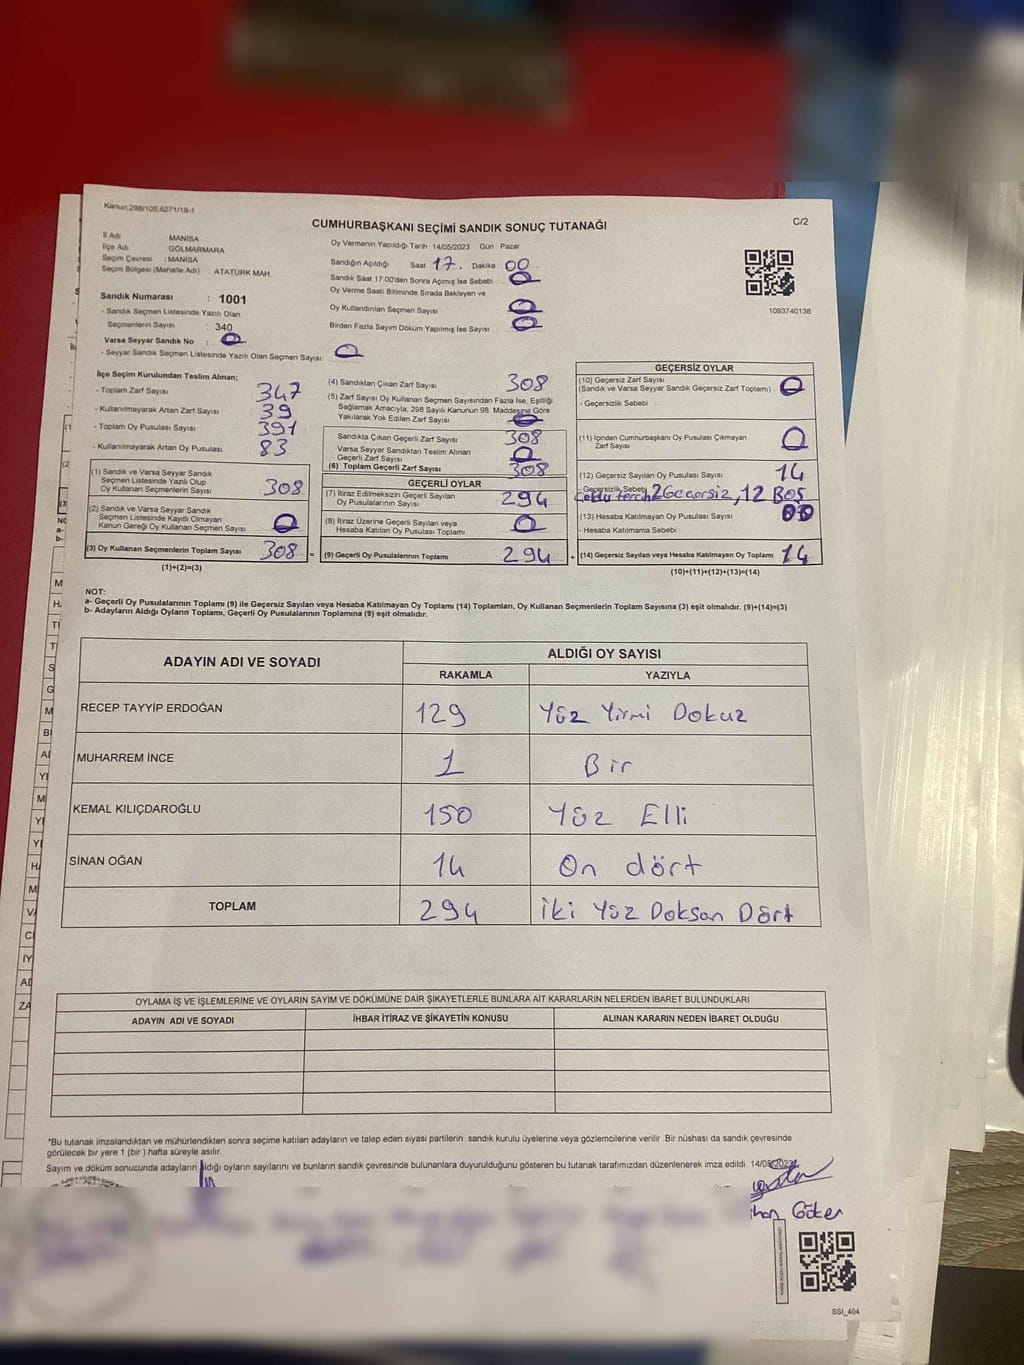 Kanun:298/105;6271/19-1
CUMHURBAŞKANI SEÇİMİ SANDIK SONUÇ TUTANAĞI
C/2
İl Adı MANİSA
İlçe Adı GÖLMARMARA
Seçim Çevresi : MANİSA
Seçim Bölgesi (Mahalle Adı) : ATATÜRK MAH
Sandık Numarası : 1001
- Sandık Seçmen Listesinde Yazılı Olan
Seçmenlerin Sayısı : 340
Varsa Seyyar Sandık No : 0
- Seyyar Sandık Seçmen Listesinde Yazılı Olan Seçmen Sayısı 0
Oy Vermenin Yapıldığı Tarih : 14/05/2023 Gün : Pazar
Sandığın Açıldığı Saat 17. Dakika 00
Sandık Saat 17:00'den Sonra Açımış İse Sebebi 0
Oy Verme Saati Bitiminde Sırada Bekleyen ve
Oy Kullandırılan Seçmen Sayısı 0
Birden Fazla Sayım Döküm Yapılmış İse Sayısı 0
1093740136
İlçe Seçim Kurulundan Teslim Alınan;
- Toplam Zarf Sayısı 347
- Kullanılmayarak Artan Zarf Sayısı 39
- Toplam Oy Pusulası Sayısı 391
- Kullanılmayarak Artan Oy Pusulası 83
(1) Sandık ve Varsa Seyyar Sandık
Seçmen Listesinde Yazılı Olup
Oy Kullanan Seçmenlerin Sayısı 308
(2) Sandık ve Varsa Seyyar Sandık
Seçmen Listesinde Kayıtlı Olmayan
Kanun Gereği Oy Kullanan Seçmen Sayısı 0
(3) Oy Kullanan Seçmenlerin Toplam Sayısı 308 =
(1)+(2)=(3)
(4) Sandıktan Çıkan Zarf Sayısı 308
(5) Zarf Sayısı Oy Kullanan Seçmen Sayısından Fazla İse, Eşitliği
Sağlamak Amacıyla, 298 Sayılı Kanunun 98. Maddesine Göre
Yakılarak Yok Edilen Zarf Sayısı 0
Sandıkta Çıkan Geçerli Zarf Sayısı 308
Varsa Seyyar Sandıktan Teslim Alınan
Geçerli Zarf Sayısı 0
(6) Toplam Geçerli Zarf Sayısı 308
GEÇERLİ OYLAR
(7) İtiraz Edilmeksizin Geçerli Sayılan
Oy Pusulalarının Sayısı 294
(8) İtiraz Üzerine Geçerli Sayılan veya
Hesaba Katılan Oy Pusulası Toplamı 0
(9) Geçerli Oy Pusulalarının Toplamı 294 +
GEÇERSİZ OYLAR
(10) Geçersiz Zarf Sayısı
(Sandık ve Varsa Seyyar Sandık Geçersiz Zarf Toplamı) 0
- Geçersizlik Sebebi :
(11) İçinden Cumhurbaşkanı Oy Pusulası Çıkmayan
Zarf Sayısı 0
(12) Geçersiz Sayılan Oy Pusulası Sayısı 14
- Geçersizlik Sebebi 2 Geçersiz, 12 Boş
(13) Hesaba Katılmayan Oy Pusulası Sayısı
Hesaba Katılmama Sebebi :
(14) Geçersiz Sayılan veya Hesaba Katılmayan Oy Toplamı 14
(10)+(11)+(12)+(13)=(14)
NOT:
a- Geçerli Oy Pusulalarının Toplamı (9) ile Geçersiz Sayılan veya Hesaba Katılmayan Oy Toplamı (14) Toplamları, Oy Kullanan Seçmenlerin Toplam Sayısına (3) eşit olmalıdır. (9)+(14)=(3)
b- Adayların Aldığı Oyların Toplamı, Geçerli Oy Pusulalarının Toplamına (9) eşit olmalıdır.
ADAYIN ADI VE SOYADI
ALDIĞI OY SAYISI
RAKAMLA YAZIYLA
RECEP TAYYİP ERDOĞAN 129 Yüz Yirmi Dokuz
MUHARREM İNCE 1 Bir
KEMAL KILIÇDAROĞLU 150 Yüz Elli
SİNAN OĞAN 14 On dört
TOPLAM 294 İki Yüz Doksan Dört
OYLAMA İŞ VE İŞLEMLERİNE VE OYLARIN SAYIM VE DÖKÜMÜNE DAİR ŞİKAYETLERLE BUNLARA AİT KARARLARIN NELERDEN İBARET BULUNDUKLARI
ADAYIN ADI VE SOYADI İHBAR İTİRAZ VE ŞİKAYETİN KONUSU ALINAN KARARIN NEDEN İBARET OLDUĞU
*Bu tutanak imzalandıktan ve mühürlendikten sonra seçime katılan adayların ve talep eden siyasi partilerin sandık kurulu üyelerine veya gözlemcilerine verilir. Bir nüshası da sandık çevresinde
görülecek bir yere 1 (bir ) hafta süreyle asılır.
Sayım ve döküm sonucunda adayların aldığı oyların sayılarını ve bunların sandık çevresinde bulunanlara duyurulduğunu gösteren bu tutanak tarafımızdan düzenlenerek imza edildi. 14/05/2023
Göker
SSI_404